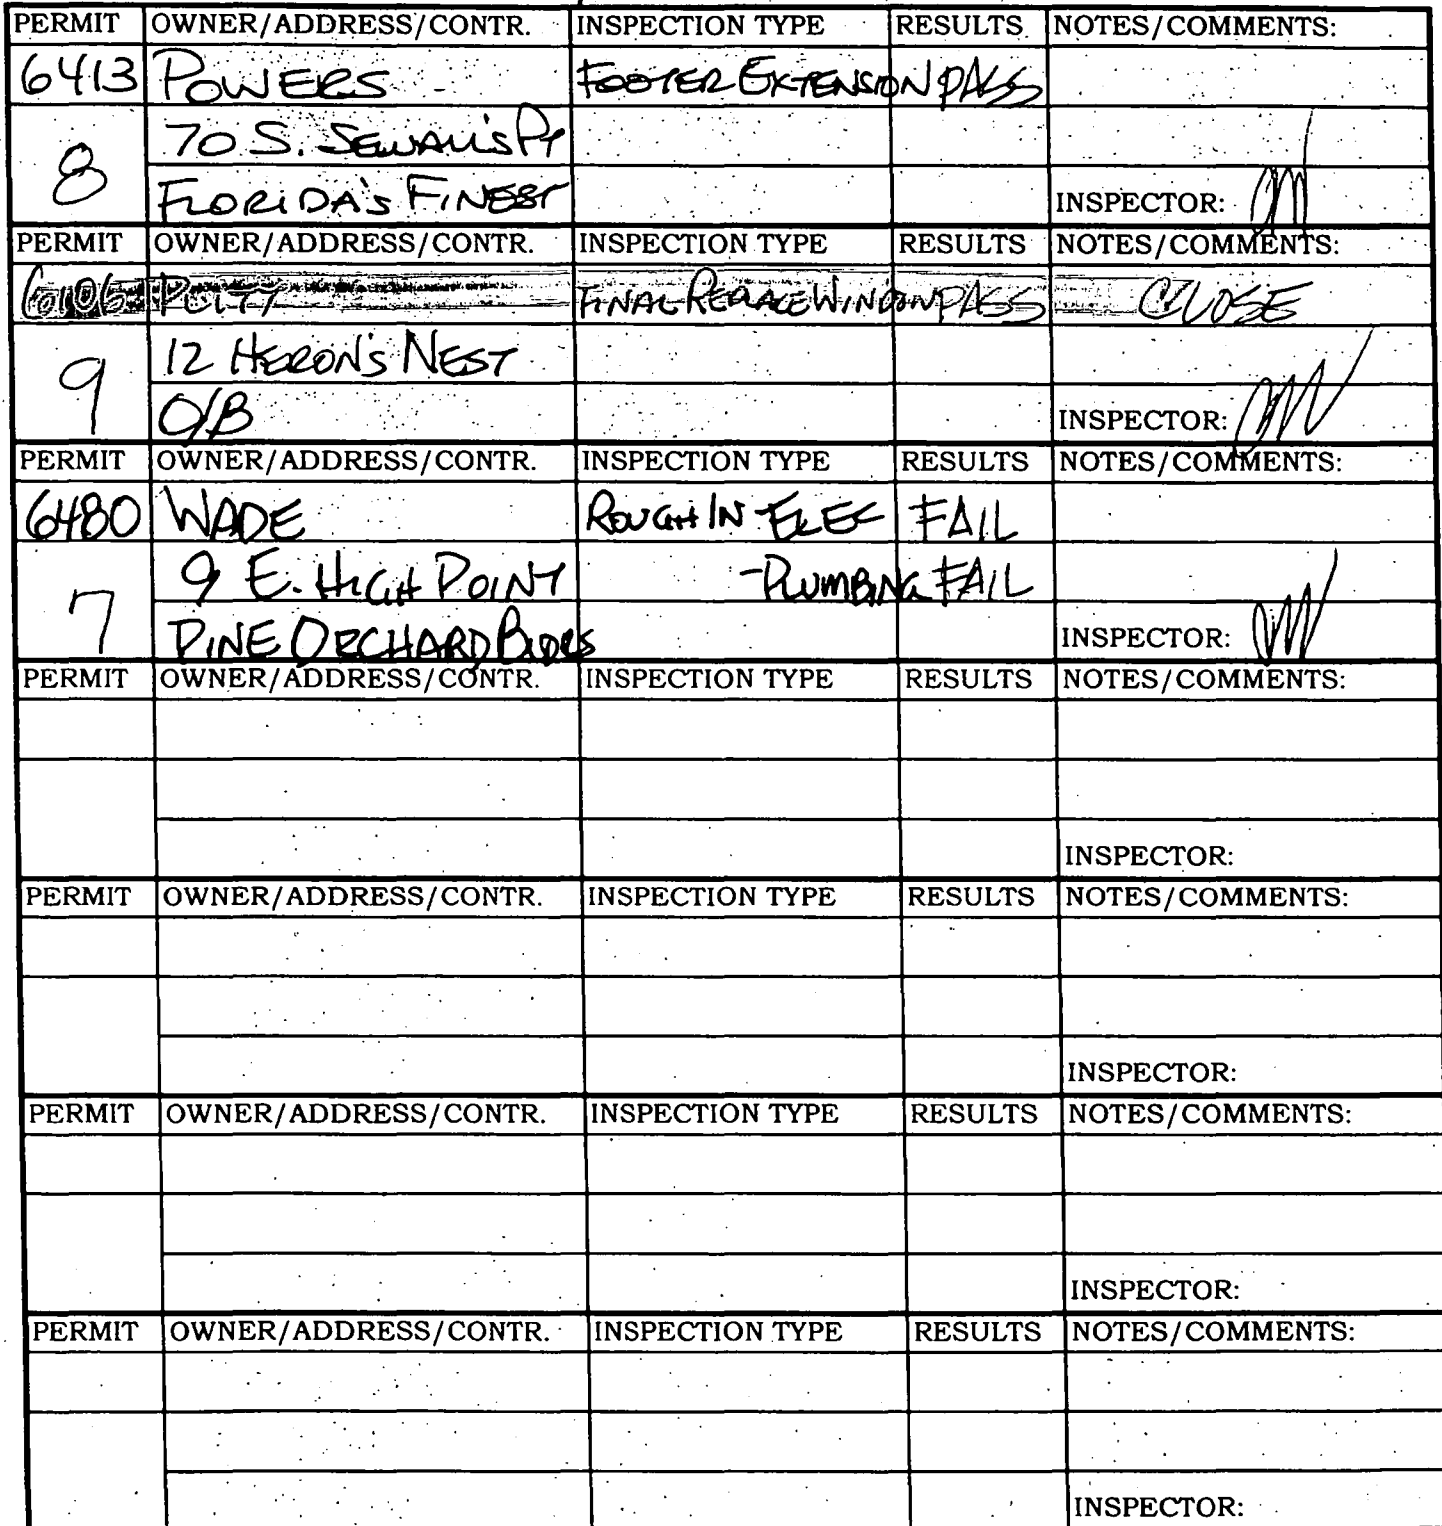 PERMIT OWNER/ADDRESS/CONTR. INSPECTION TYPE RESULTS NOTES/COMMENTS:
6413 POWERS FOOTER EXTENSION PASS
8 70 S. SEWALL'S PT
FLORIDA'S FINEST INSPECTOR:
PERMIT OWNER/ADDRESS/CONTR. INSPECTION TYPE RESULTS NOTES/COMMENTS:
6106 FINAL REPLACE WINDOW PASS CLOSE
9 12 HERON'S NEST
O/B INSPECTOR:
PERMIT OWNER/ADDRESS/CONTR. INSPECTION TYPE RESULTS NOTES/COMMENTS:
6480 WADE ROUGH IN - ELEC FAIL
7 9 E. HIGH POINT - PLUMBING FAIL
PINE ORCHARD BLDRS INSPECTOR:
PERMIT OWNER/ADDRESS/CONTR. INSPECTION TYPE RESULTS NOTES/COMMENTS:
INSPECTOR:
PERMIT OWNER/ADDRESS/CONTR. INSPECTION TYPE RESULTS NOTES/COMMENTS:
INSPECTOR:
PERMIT OWNER/ADDRESS/CONTR. INSPECTION TYPE RESULTS NOTES/COMMENTS:
INSPECTOR:
PERMIT OWNER/ADDRESS/CONTR. INSPECTION TYPE RESULTS NOTES/COMMENTS:
INSPECTOR: